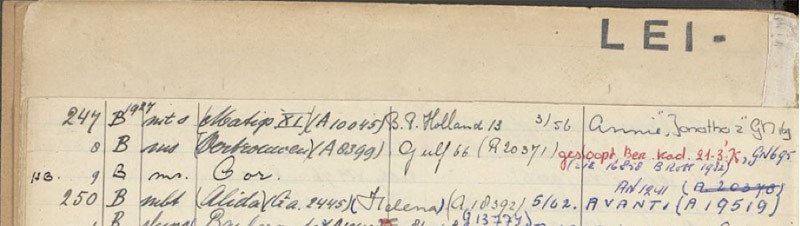 LEI-
247 B 1927 mts (Matigo XI) (A10045) B.P. Holland 13 3/56 Annie", Jonathan 2"
8 B ms (Vertrouwen) (A8399) Gulf 66 (A20371) gesloopt Ber. Kad. 21-3-, GN695
B Rott 1932)
NB. 9 B ms. Cor.
AN1241 (A 20378)
250 B mbt (Alida) (Ga. 2445) (Helena) (A 18392) 5/62. AVANTI (A 19519)
B